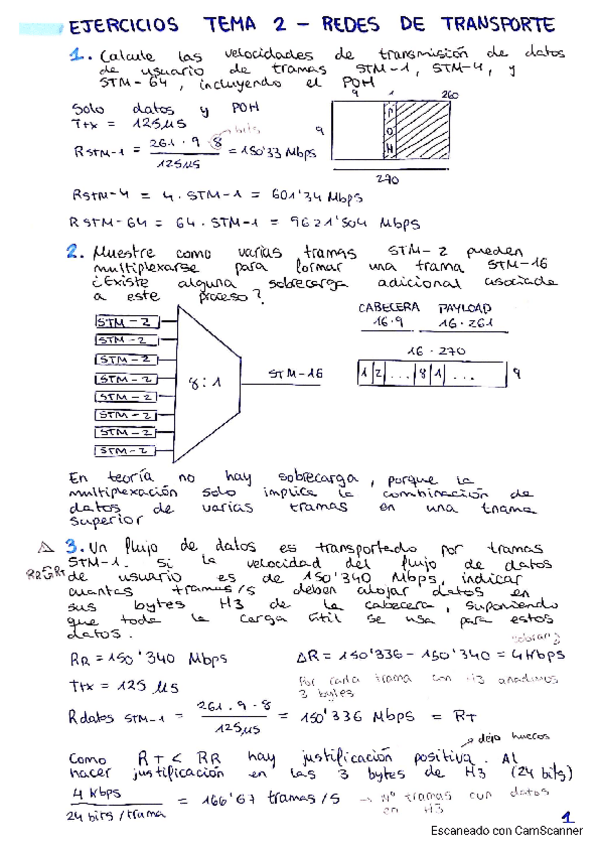 EJERCICIOS TEMA 2 - REDES DE TRANSPORTE
1. Calcule las velocidades de transmisión de datos
de usuario de tramas STM-1, STM-4, y
STM-64, incluyendo el POH
Solo datos y POH
Ttx = 125 µs
bits
RSTM-1 = 261 · 9 · 8 / 125µs = 150'33 Mbps
9 1 260
9
P
O
H
270
RSTM-4 = 4 · STM-1 = 601'34 Mbps
RSTM-64 = 64 · STM-1 = 9621'504 Mbps
2. Muestre como varias tramas STM-2 pueden
multiplexarse para formar una trama STM-16
¿Existe alguna sobrecarga adicional asociada
a este proceso?
CABECERA PAYLOAD
16·9 16·261
16·270
STM-2
STM-2
STM-2
STM-2
STM-2
STM-2
STM-2
STM-2
8:1
STM-16
1 2 ... 8 1 ...
9
En teoría no hay sobrecarga, porque la
multiplexación solo implica la combinación de
datos de varias tramas en una trama
superior
3. Un flujo de datos es transportado por tramas
STM-1. Si la velocidad del flujo de datos
de usuario es de 150'340 Mbps, indicar
cuantas tramas/s deben alojar datos en
sus bytes H3 de la cabecera, suponiendo
que toda la carga útil se usa para estos
datos.
RR = 150'340 Mbps
ΔR = 150'336 - 150'340 = 4 Kbps
Ttx = 125 µs
Por cada trama con H3 añadimos
3 bytes
Rdatos STM-1 = 261 · 9 · 8 / 125µs = 150'336 Mbps = RT
dejo huecos
Como RT < RR hay justificación positiva. Al
hacer justificación en las 3 bytes de H3 (24 bits)
4 Kbps / 24 bits/trama = 166'67 tramas/s → Nº tramas con datos
en H3
1
Escaneado con CamScanner